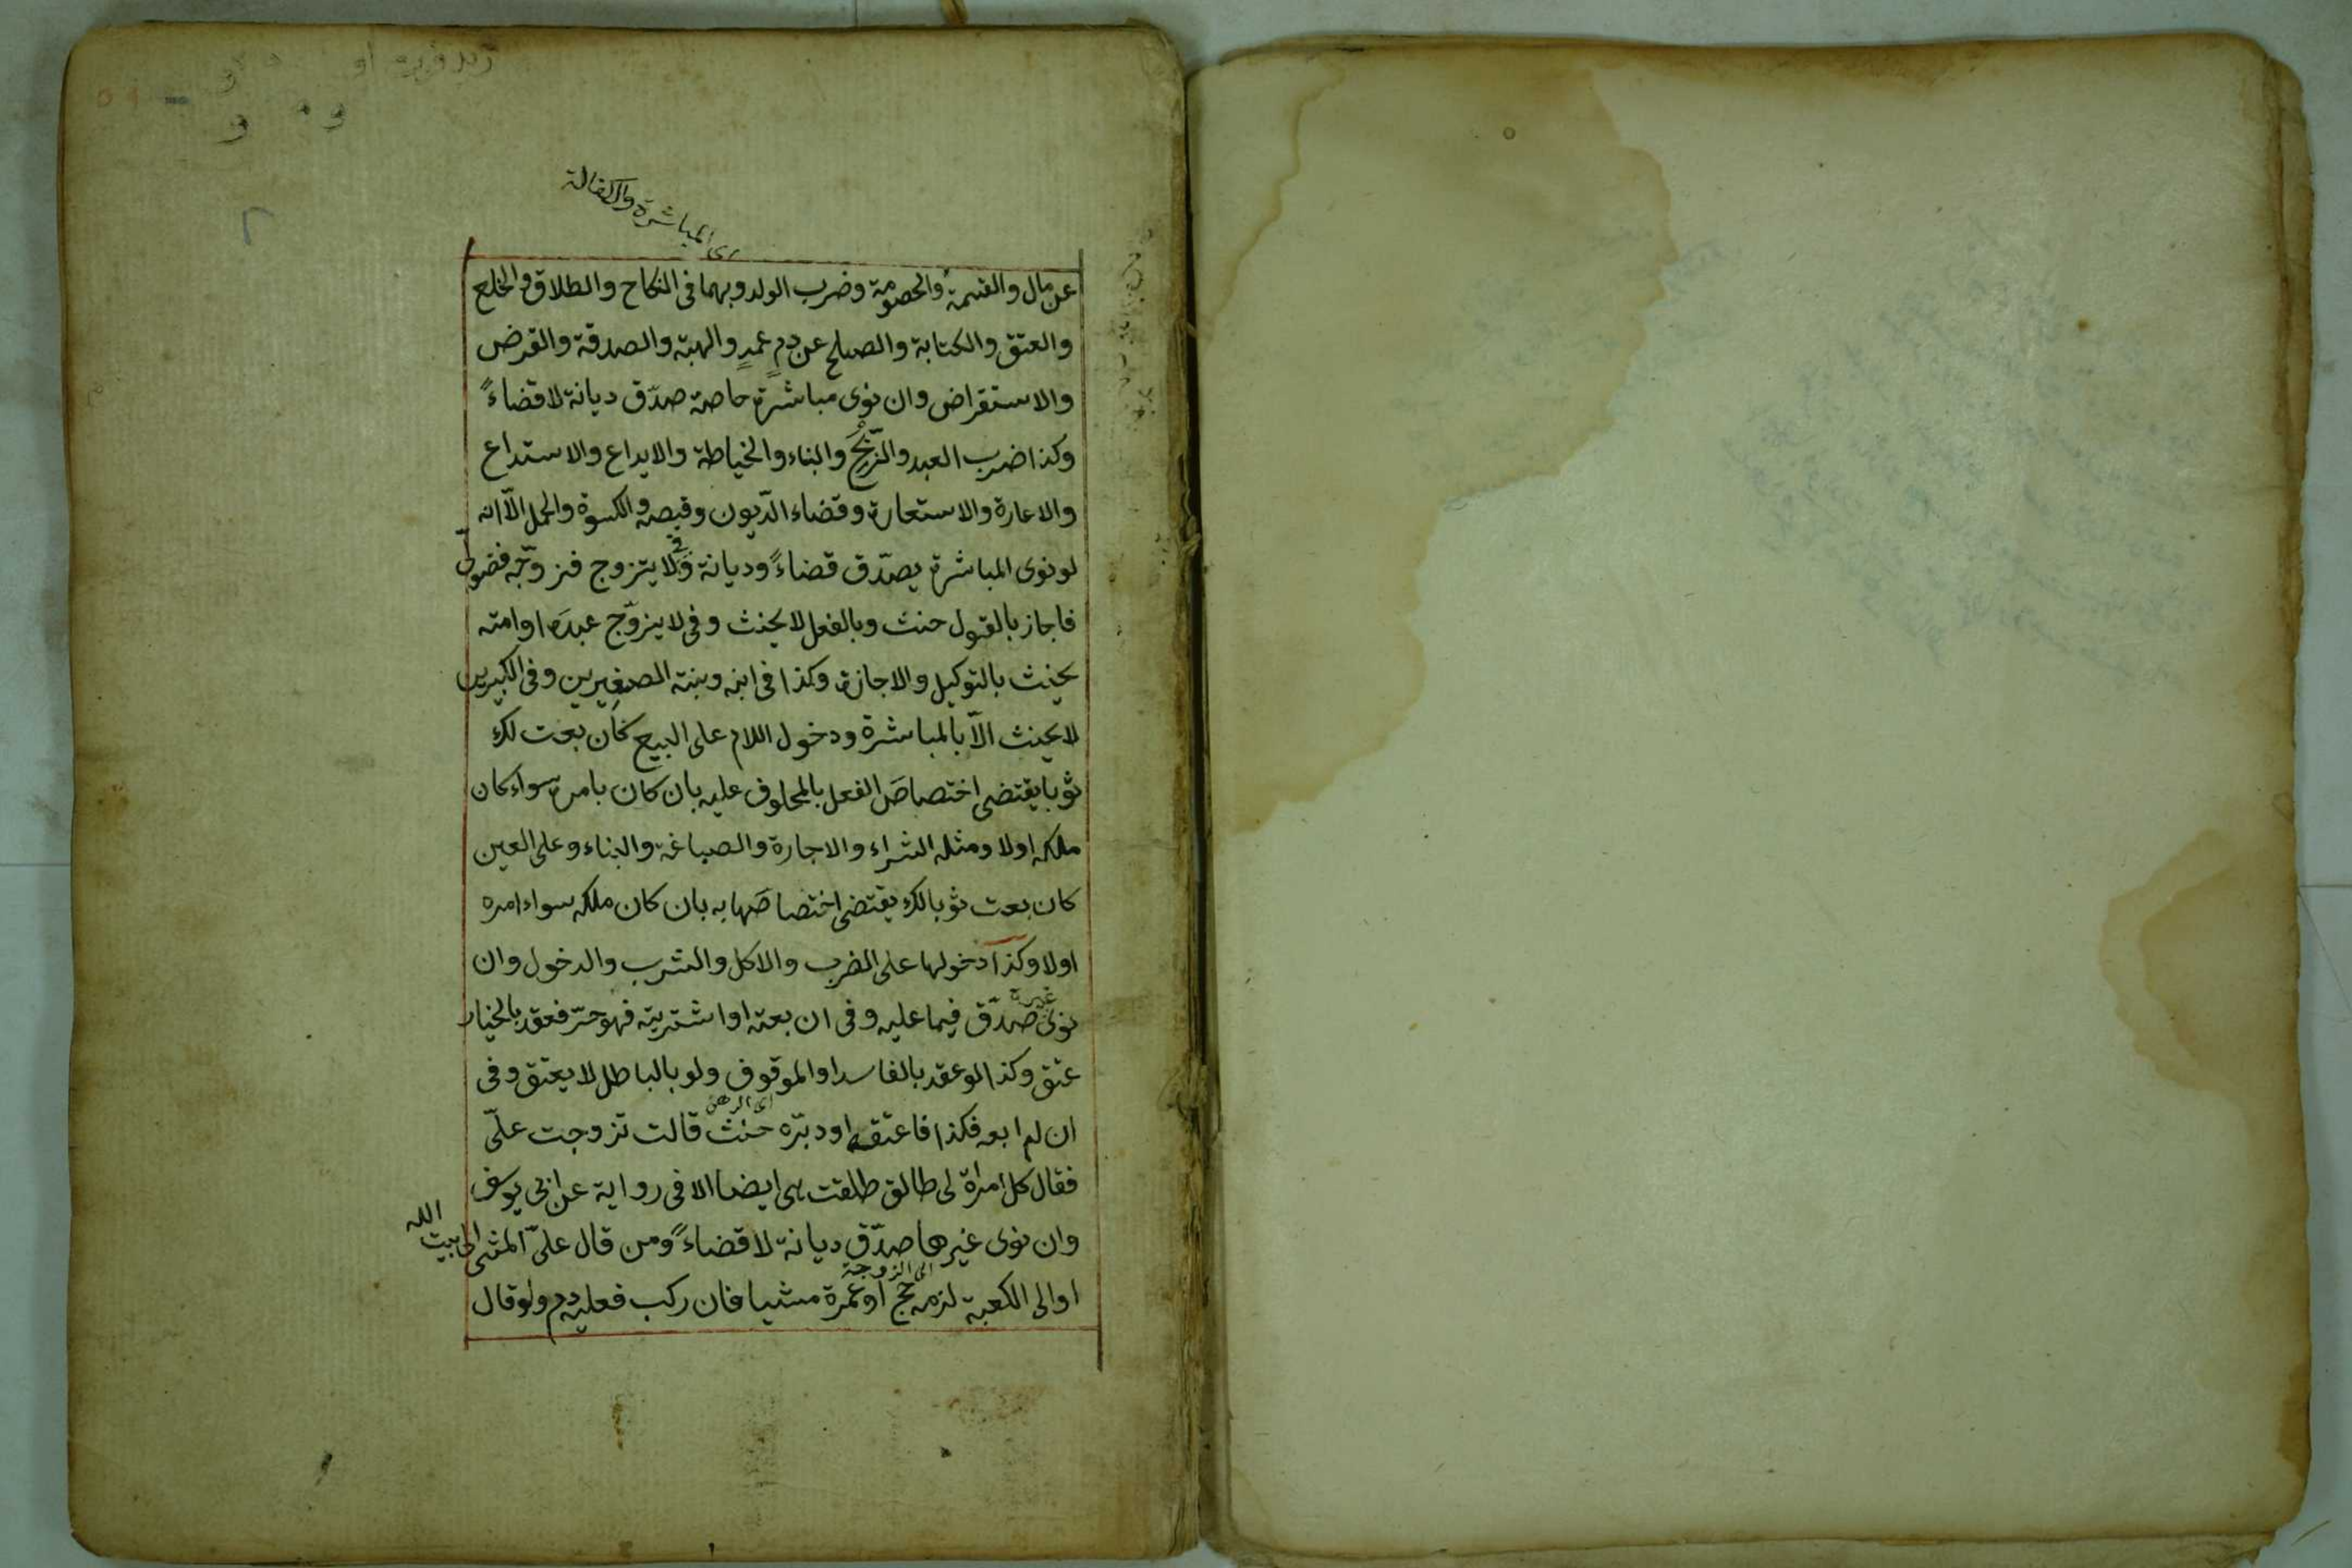 اى المباشرة والكفالة
عن مال والقسمة والخصومة وضرب الولد وبهما فى النكاح والطلاق والخلع
والعتق والكتابة والصلح عن دمٍ عمدٍ والهبة والصدقة والقرض
والاستقراض وان نوى مباشرة خاصة صدّق ديانة لا قضاءً
وكذا ضرب العبد والذّبح والبناء والخياطة والايداع والاستداع
والاعارة والاستعارة وقضاء الدّيون وقبضه والكسوة والحمل الّا انه
لو نوى المباشرة يصدّق قضاءً وديانة وفى لا يتزوج فزوّجه فضولىّ
فاجاز بالقول حنث وبالفعل لا يحنث وفى لا يزوّج عبدَه او امته
يحنث بالتوكيل والاجازة وكذا فى ابنه وبنته الصغيرين وفى الكبيرين
لا يحنث الّا بالمباشرة ودخول اللام على البيع كان بعت لك
ثوبا يقتضى اختصاصَ الفعل بالمحلوف عليه بان كان بامره سواء كان
ملكه اولا ومثله الشراء والاجارة والصباغة والبناء وعلى العين
كان بعت ثوبا لك يقتضى اختصاصَها به بان كان ملكه سواء امره
اولا وكذا دخولها على الضرب والاكل والشرب والدخول وان
نوى غيره صدّق فيما عليه وفى ان بعته او اشتريته فهو حرّ فعقد بالخيار
عتق وكذا لو عقد بالفاسد او الموقوف ولو بالباطل لا يعتق وفى
اى الرهن
ان لم ابعه فكذا فاعتقه او دبّره حنث قالت تزوجت علىّ
فقال كل امراة لى طالق طلقت هى ايضا الا فى رواية عن ابى يوسف
وان نوى غيرها صدّق ديانة لا قضاءً ومن قال علىّ المشى الى بيت الله
الى الزوجة
او الى الكعبة لزمه حج او عمرة مشيا فان ركب فعليه دم ولو قال